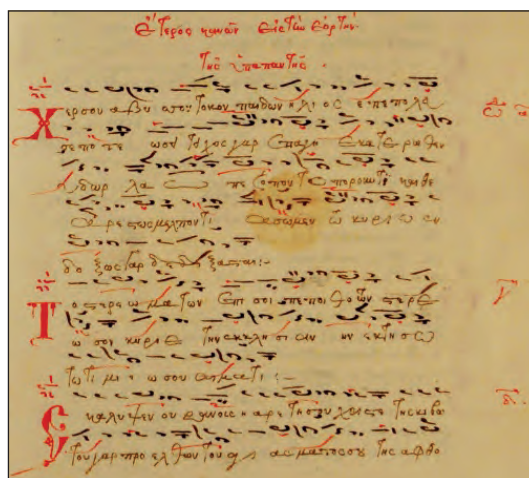 Ἕτερος κανὼν εἰς τὴν ἑορτὴν
τῆς ὑπαπαντῆς.
Χερσον αβυσσοτοκον παιδον ηλιος επεπολε
σε ποτε ωσει τειχος γαρ επαγη εκατερωθεν
υδωρ λαω πεζοποντοπορουντι και θε
αρεστως μελποντι ασωμεν τω κυριω εν
δοξως γαρ δεδοξασται:-
Το στερεωμα των επι σοι πεποιθοτων στερε
ωσον κυριε την εκκλησιαν ην εκτησω
τω τιμιω σου αιματι:-
Εκαλυψεν ουρανους η αρετη σου χριστε της κιβω
του γαρ προελθων του αγιασματος σου της αφθο